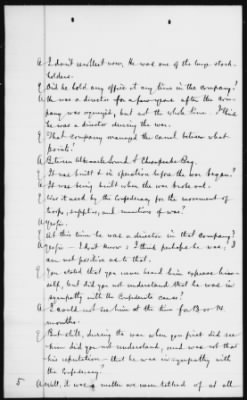 A I don't recollect now. He was one of the large stock-
holders.
Q Did he hold any office at any time in the company?
A He was a director for a few years after the com-
pany was organized, but not the whole time. I think
he was a director during the war.
Q That company managed the canal between what
points?
A Between Albemarle Sound & Chesapeake Bay.
Q It was built & in operation before the war began?
A It was being built when the war broke out.
Q Was it used by the Confederacy for the movement of
troops, supplies, and munitions of war?
A Yessir.
Q At this time he was a director in that company?
A Yessir - I don't know; I think perhaps he was; I
am not positive as to that.
Q You stated that you never heard him express him-
self, but did you not understand that he was in
sympathy with the Confederate cause?
A I could not see him at the time for 13 or 14
months.
Q But still, during the war when you first did see
him did you not understand, and was not that
his reputation - that he was in sympathy with
the Confederacy?
5 A Well, it was a matter we never talked of at all